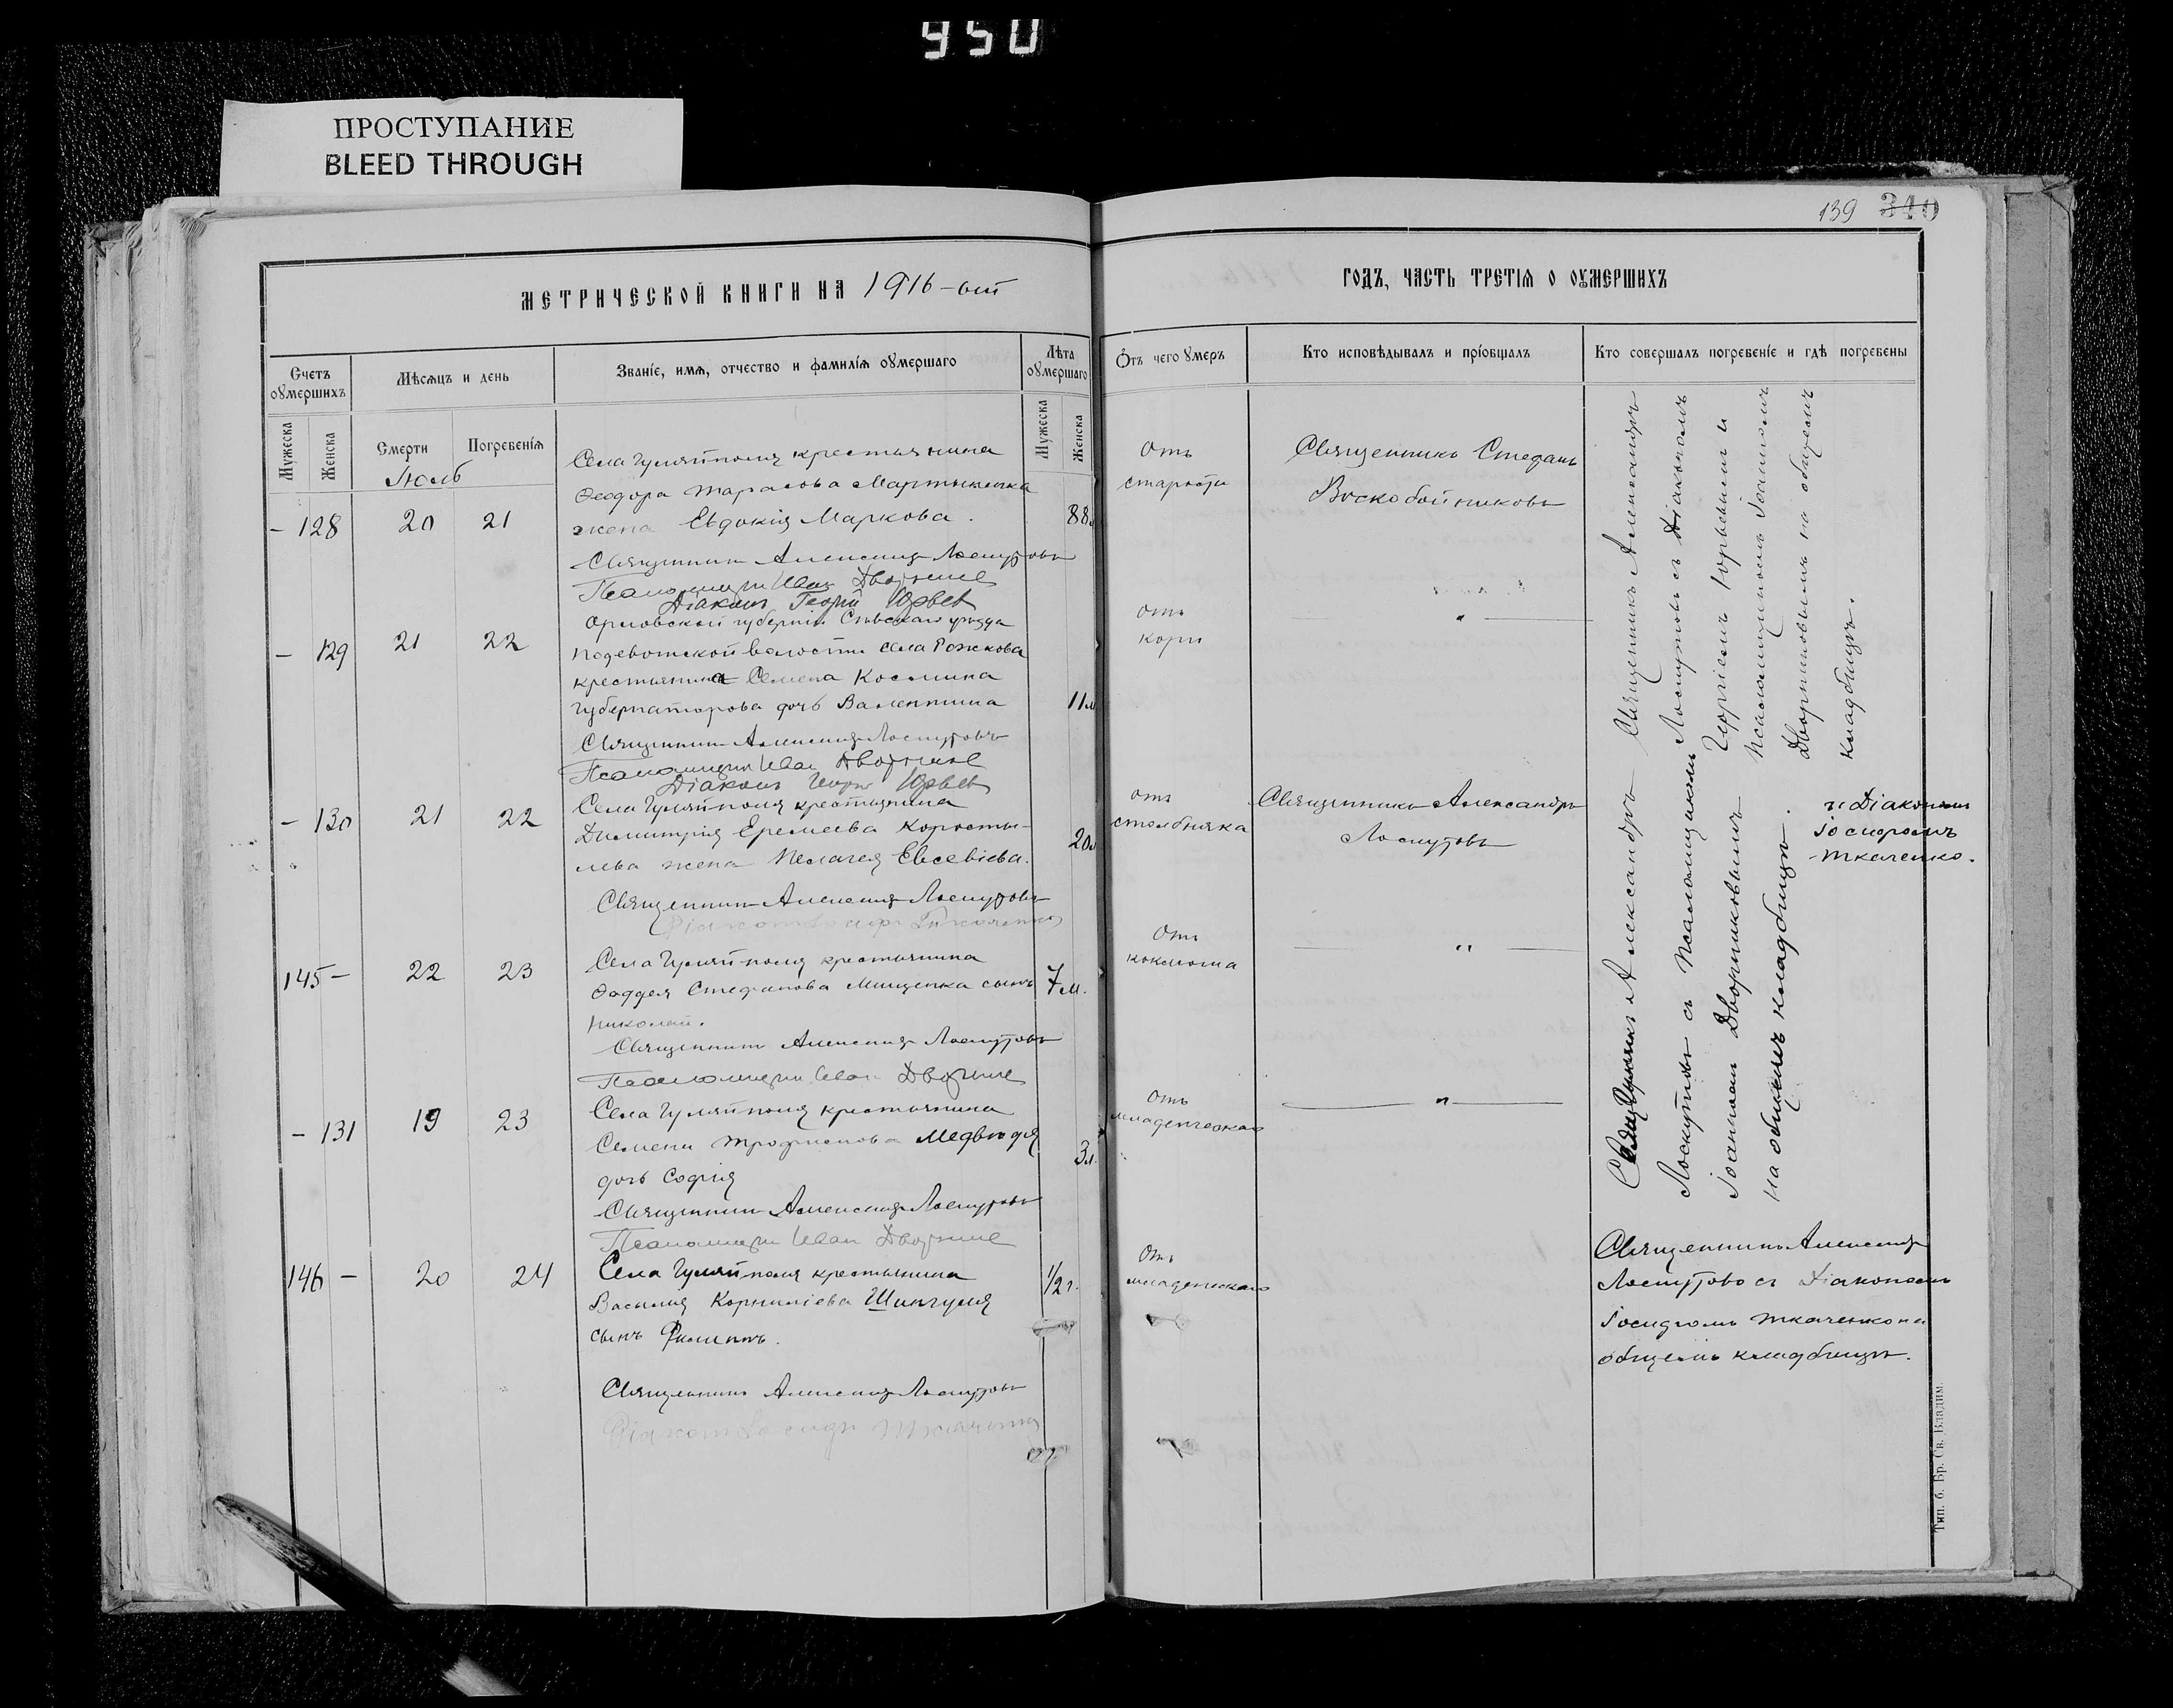 950
ПРОСТУПАНИЕ
BLEED THROUGH
139 340
МЕТРИЧЕСКОЙ КНИГИ НА 1916-ый
ГОДЪ, ЧАСТЬ ТРЕТІЯ О ОУМЕРШИХЪ
Счетъ оумершихъ
Мѣсяцъ и день
Званіе, имя, отчество и фамилія оумершаго
Лѣта оумершаго
Отъ чего умеръ
Кто исповѣдывалъ и пріобщалъ
Кто совершалъ погребеніе и гдѣ погребены
Мужеска
Женска
Смерти
Погребенія
Мужеска
Женска
Іюль
– 128 20 21
Села Гуляйполя крестьянина
Ѳеодора Тарасова Мартыненка
жена Евдокія Маркова. 88л
Священникъ Александръ Лоскутовъ
Псаломщикъ Иван Дворник
Діаконъ Георгій Юрьев
Отъ
старости
Священникъ Стефанъ
Воскобойниковъ
– 129 21 22
Орловской губерніи Сѣвскаго уѣзда
волости села Рожкова
крестьянина Семена Космина
Губернаторова дочь Валентина 11м
Священникъ Александръ Лоскутовъ
Псаломщикъ Иван Дворник
Діаконъ Георгій Юрьев
отъ
кори
"
Священникъ Александръ
Лоскутовъ съ Діакономъ
Георгіемъ Юрьевымъ и
Псаломщикомъ Іоанномъ
Дворниковымъ на общемъ
кладбищѣ.
– 130 21 22
Села Гуляйполя крестьянина
Димитрія Еремеева Коросты-
лева жена Пелагея Евсевіева. 20л
Священникъ Александръ Лоскутовъ
отъ
столбняка
Священникъ Александръ
Лоскутовъ
и Діакономъ
Іосифомъ
Ткаченко.
145 – 22 23
Села Гуляйполя крестьянина
Ѳаддея Стефанова Мищенка сынъ 7м.
Николай.
Священникъ Александръ Лоскутовъ
Псаломщикъ Иван Дворник
Отъ
коклюша
"
Священникъ Александръ
Лоскутовъ съ Псаломщикомъ
Іоанномъ Дворниковымъ
на общемъ кладбищѣ.
– 131 19 23
Села Гуляйполя крестьянина
Семена Трофимова Медвѣдя
дочь Софія 3л.
Священникъ Александръ Лоскутовъ
Псаломщикъ Иван Дворник
Отъ
младенческой
"
146 – 20 24
Села Гуляйполя крестьянина 1/2 г.
Василія Корниліева Шингуля
сынъ Филиппъ.
Священникъ Александръ Лоскутовъ
Діаконъ Іосифъ Ткаченко
Отъ
младенческой
Священникъ Александръ
Лоскутовъ съ Діакономъ
Іосифомъ Ткаченко на
общемъ кладбищѣ.
Тип. б. Бр. Св. Владим.